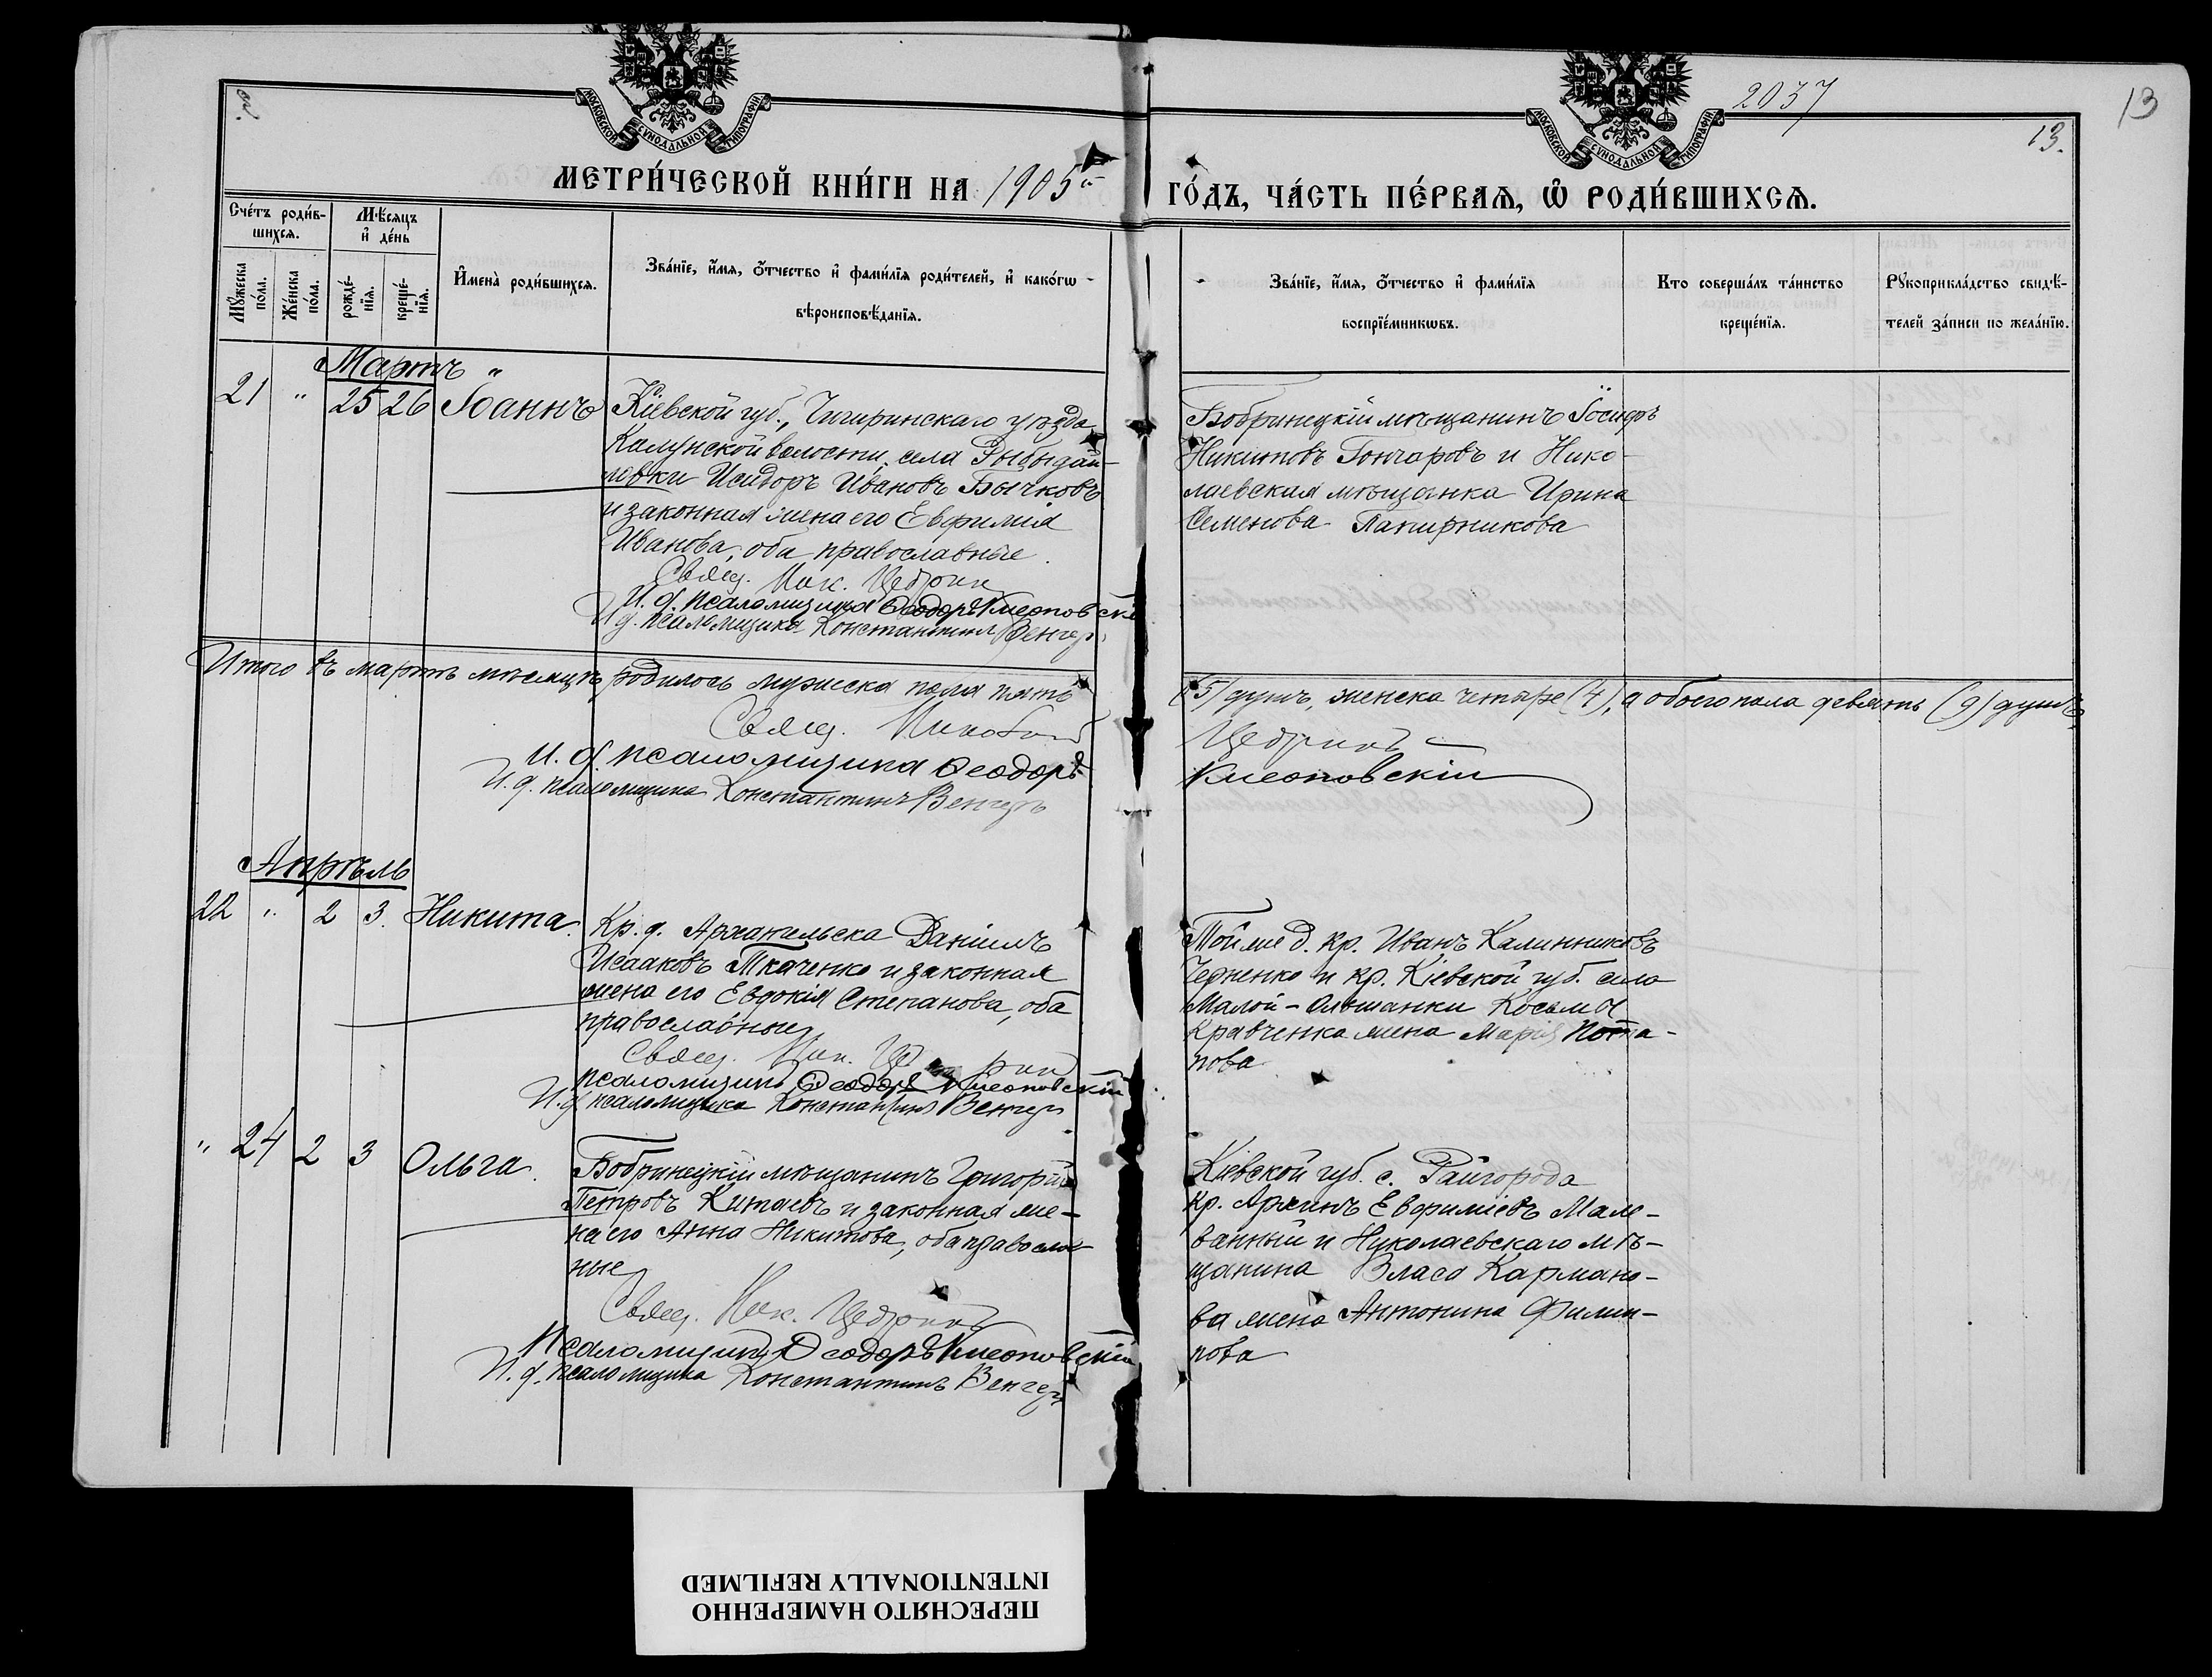 МОСКОВСКОЙ СѴНОДАЛЬНОЙ ТИПОГРАФІИ
МОСКОВСКОЙ СѴНОДАЛЬНОЙ ТИПОГРАФІИ
2037
13
13.
МЕТРИ́ЧЕСКОЙ КНИ́ГИ НА 1905й ГО́ДЪ, ЧА́СТЬ ПЕ́РВАѦ, Ѿ РОДИ́ВШИХСѦ.
Сче́тъ роди́в-
шихсѧ.
Мѣ́сѧцъ
и҆ де́нь
Мꙋ́жеска
по́ла.
Же́нска
по́ла.
рожде́-
нїѧ.
креще́-
нїѧ.
И҆мена̀ роди́вшихсѧ.
Зва́нїе, и҆́мѧ, о҆́тчество и҆ фами́лїѧ роди́телей, и҆ како́гѡ
вѣроисповѣ́данїѧ.
Зва́нїе, и҆́мѧ, о҆́тчество и҆ фами́лїѧ
воспрїе́мникѡвъ.
Кто соверша́лъ та́инство
креще́нїѧ.
Рꙋкоприкла́дство свидѣ́-
телей за́писи по жела́нїю.
Мартъ
21 " 25 26 Іоаннъ
Кіевской губ., Чигиринскаго уѣзда
волости, села
Исидоръ Ивановъ Бычковъ
и законная жена его Евфимія
Иванова, оба православные.
Свящ. Ник. Цедринъ
И. д. псаломщика Ѳеодоръ Клеоповскій
И. д. псаломщика Константинъ Венгеръ
Бобринецкій мѣщанинъ Іосифъ
Никитовъ Гончаровъ и Нико-
лаевская мѣщанка Ирина
Семенова Папирникова
Итого въ мартѣ мѣсяцѣ родилось мужеска пола пять (5) душъ, женска четыре (4), а обоего пола девять (9) душъ
Свящ. Цедринъ
И. д. псаломщика Ѳеодоръ Клеоповскій
И. д. псаломщика Константинъ Венгеръ
Апрѣль
22 " 2 3. Никита.
Кр. д. Архангельска Даніилъ
Исааковъ Ткаченко и законная
жена его Евдокія Степанова, оба
православные
Свящ. Ник. Цедринъ
псаломщикъ Ѳеодоръ Клеоповскій
И. д. псаломщика Константинъ Венгеръ
Той же д. кр. Иванъ Калинниковъ
Черненко и кр. Кіевской губ. села
Малой-Ольшанки Косьмы
Кравченка жена Марія Пота-
пова
" 24 2 3 Ольга.
Бобринецкій мѣщанинъ Григорій
Петровъ Китаевъ и законная же-
на его Анна Никитова, оба православ-
ные
Свящ. Ник. Цедринъ
Псаломщикъ Ѳеодоръ Клеоповскій
И. д. псаломщика Константинъ Венгеръ
Кіевской губ. с. Райгорода
кр. Евфиміевъ Мале-
ванный и Николаевскаго мѣ-
щанина Власа Кармано-
ва жена Антонина Филип-
пова
ПЕРЕСНЯТО НАМЕРЕННО
INTENTIONALLY REFILMED